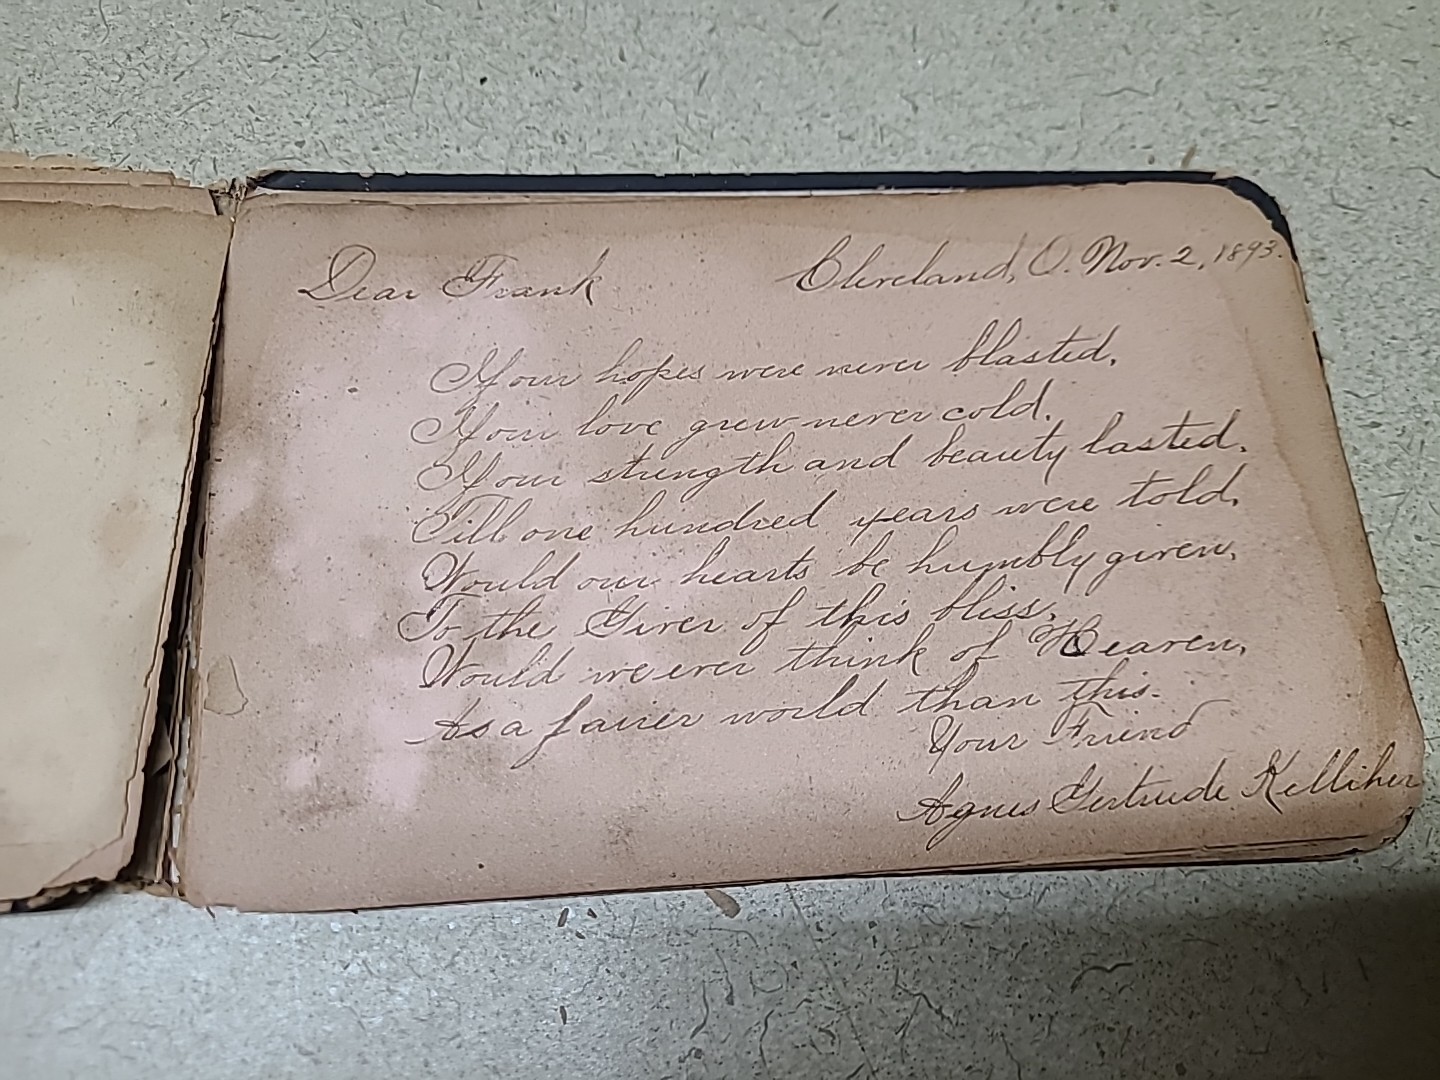 Dear Frank Cleveland, O. Nov. 2, 1893.
If our hopes were never blasted,
If our love grew never cold.
If our strength and beauty lasted.
Till one hundred years were told,
Would our hearts be humbly given,
To the Giver of this bliss,
Would we ever think of Heaven,
As a fairer world than this.
Your Friend
Agnes Gertrude Kelliher